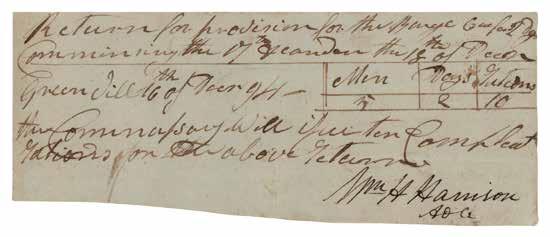 Return for provision for the Barge for 2 Days
Commensing the 17th & ending the 18th of Decr
Green Vill 16th of Decr 94 —
Men Days Rations
5 2 10
the Commassary Will issue ten Compleat
Rations for the above Return
Wm H Harrison
ADC